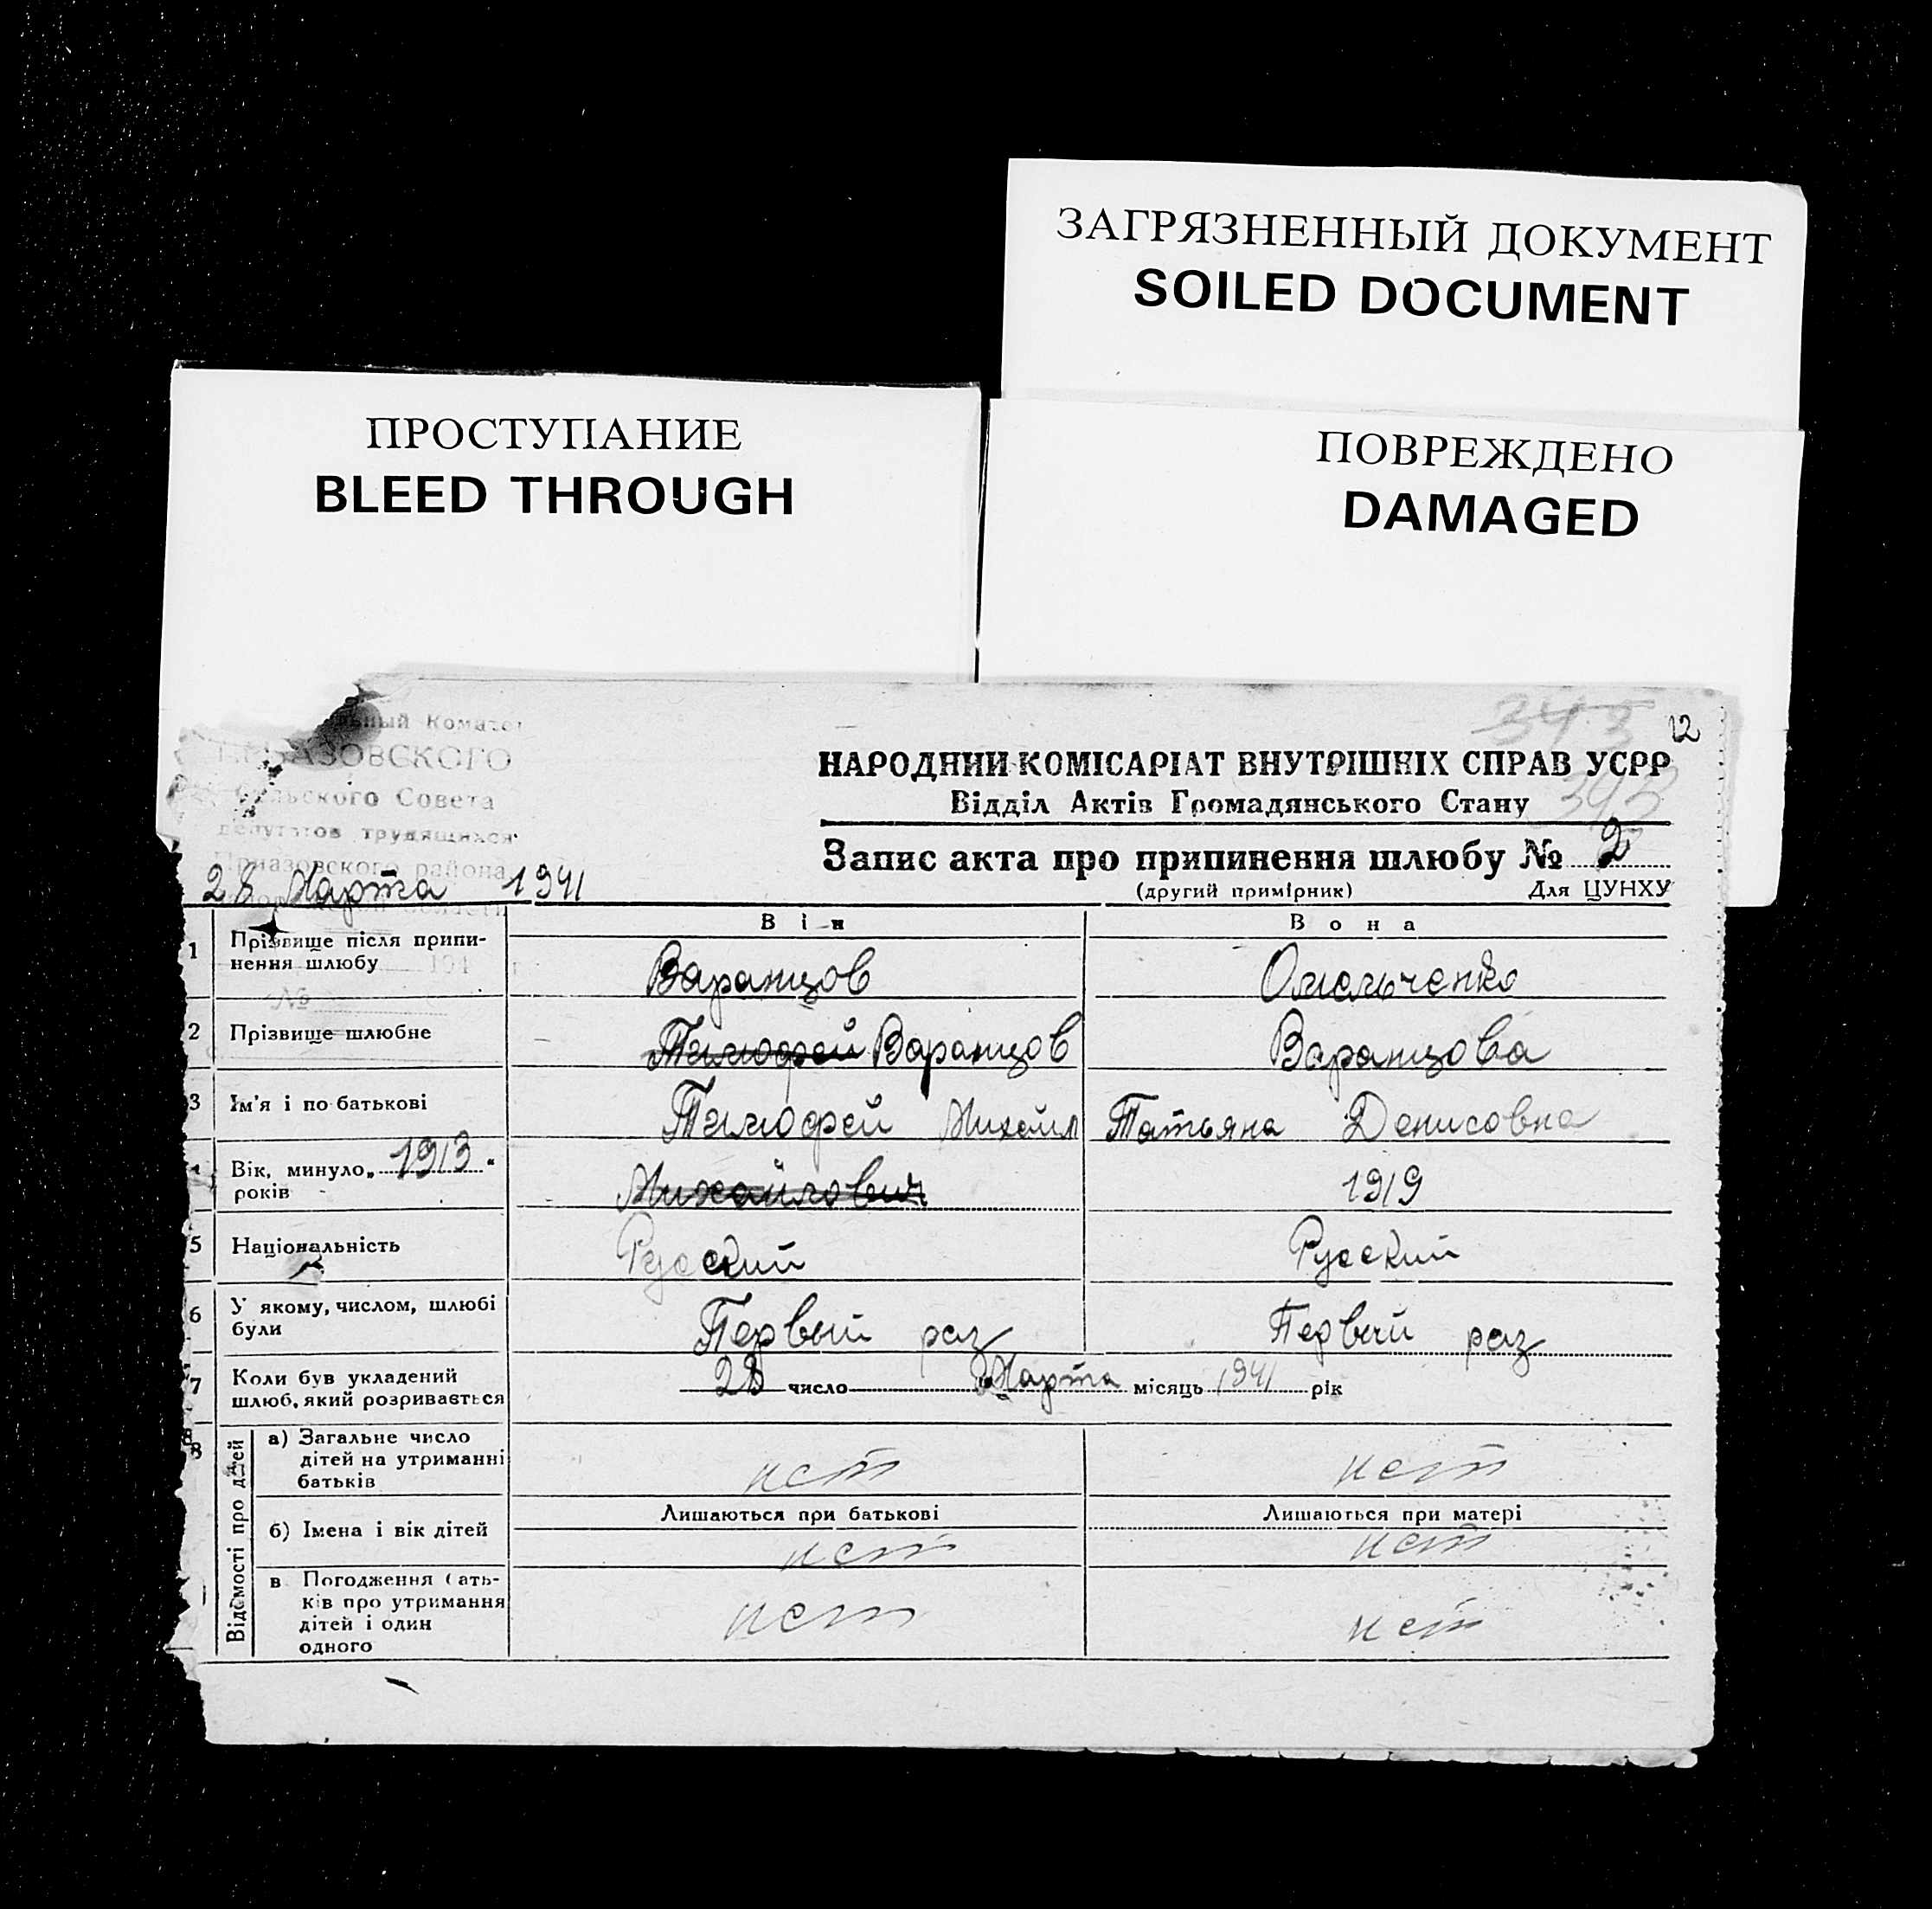 ЗАГРЯЗНЕННЫЙ ДОКУМЕНТ
SOILED DOCUMENT
ПРОСТУПАНИЕ
BLEED THROUGH
ПОВРЕЖДЕНО
DAMAGED
343
12
АЗОВСКОГО
Сельского Совета
депутатов трудящихся
Приазовского района
НАРОДНИЙ КОМІСАРІАТ ВНУТРІШНІХ СПРАВ УСРР
Відділ Актів Громадянського Стану
343
Запис акта про припинення шлюбу № 2
(другий примірник) Для ЦУНХУ
28 Марта 1941
Він Вона
1 Прізвище після припи-
нення шлюбу
Варанцов Омельченко
2 Прізвище шлюбне Тимофей Варанцов Варанцова
3 Ім'я і по батькові Тимофей Михайл Татьяна Денисовна
Вік, минуло „1913“
років
Михайлович 1919
5 Національність Русский Русский
6 У якому, числом, шлюбі
були
Первый раз Первый раз
7 Коли був укладений
шлюб, який розривається
28 число Марта місяць 1941 рік
8 Відомості про дітей
а) Загальне число
дітей на утриманні
батьків
нет нет
Лишаються при батькові Лишаються при матері
б) Імена і вік дітей нет нет
в Погодження (ать-
ків про утримання
дітей і один
одного
нет нет